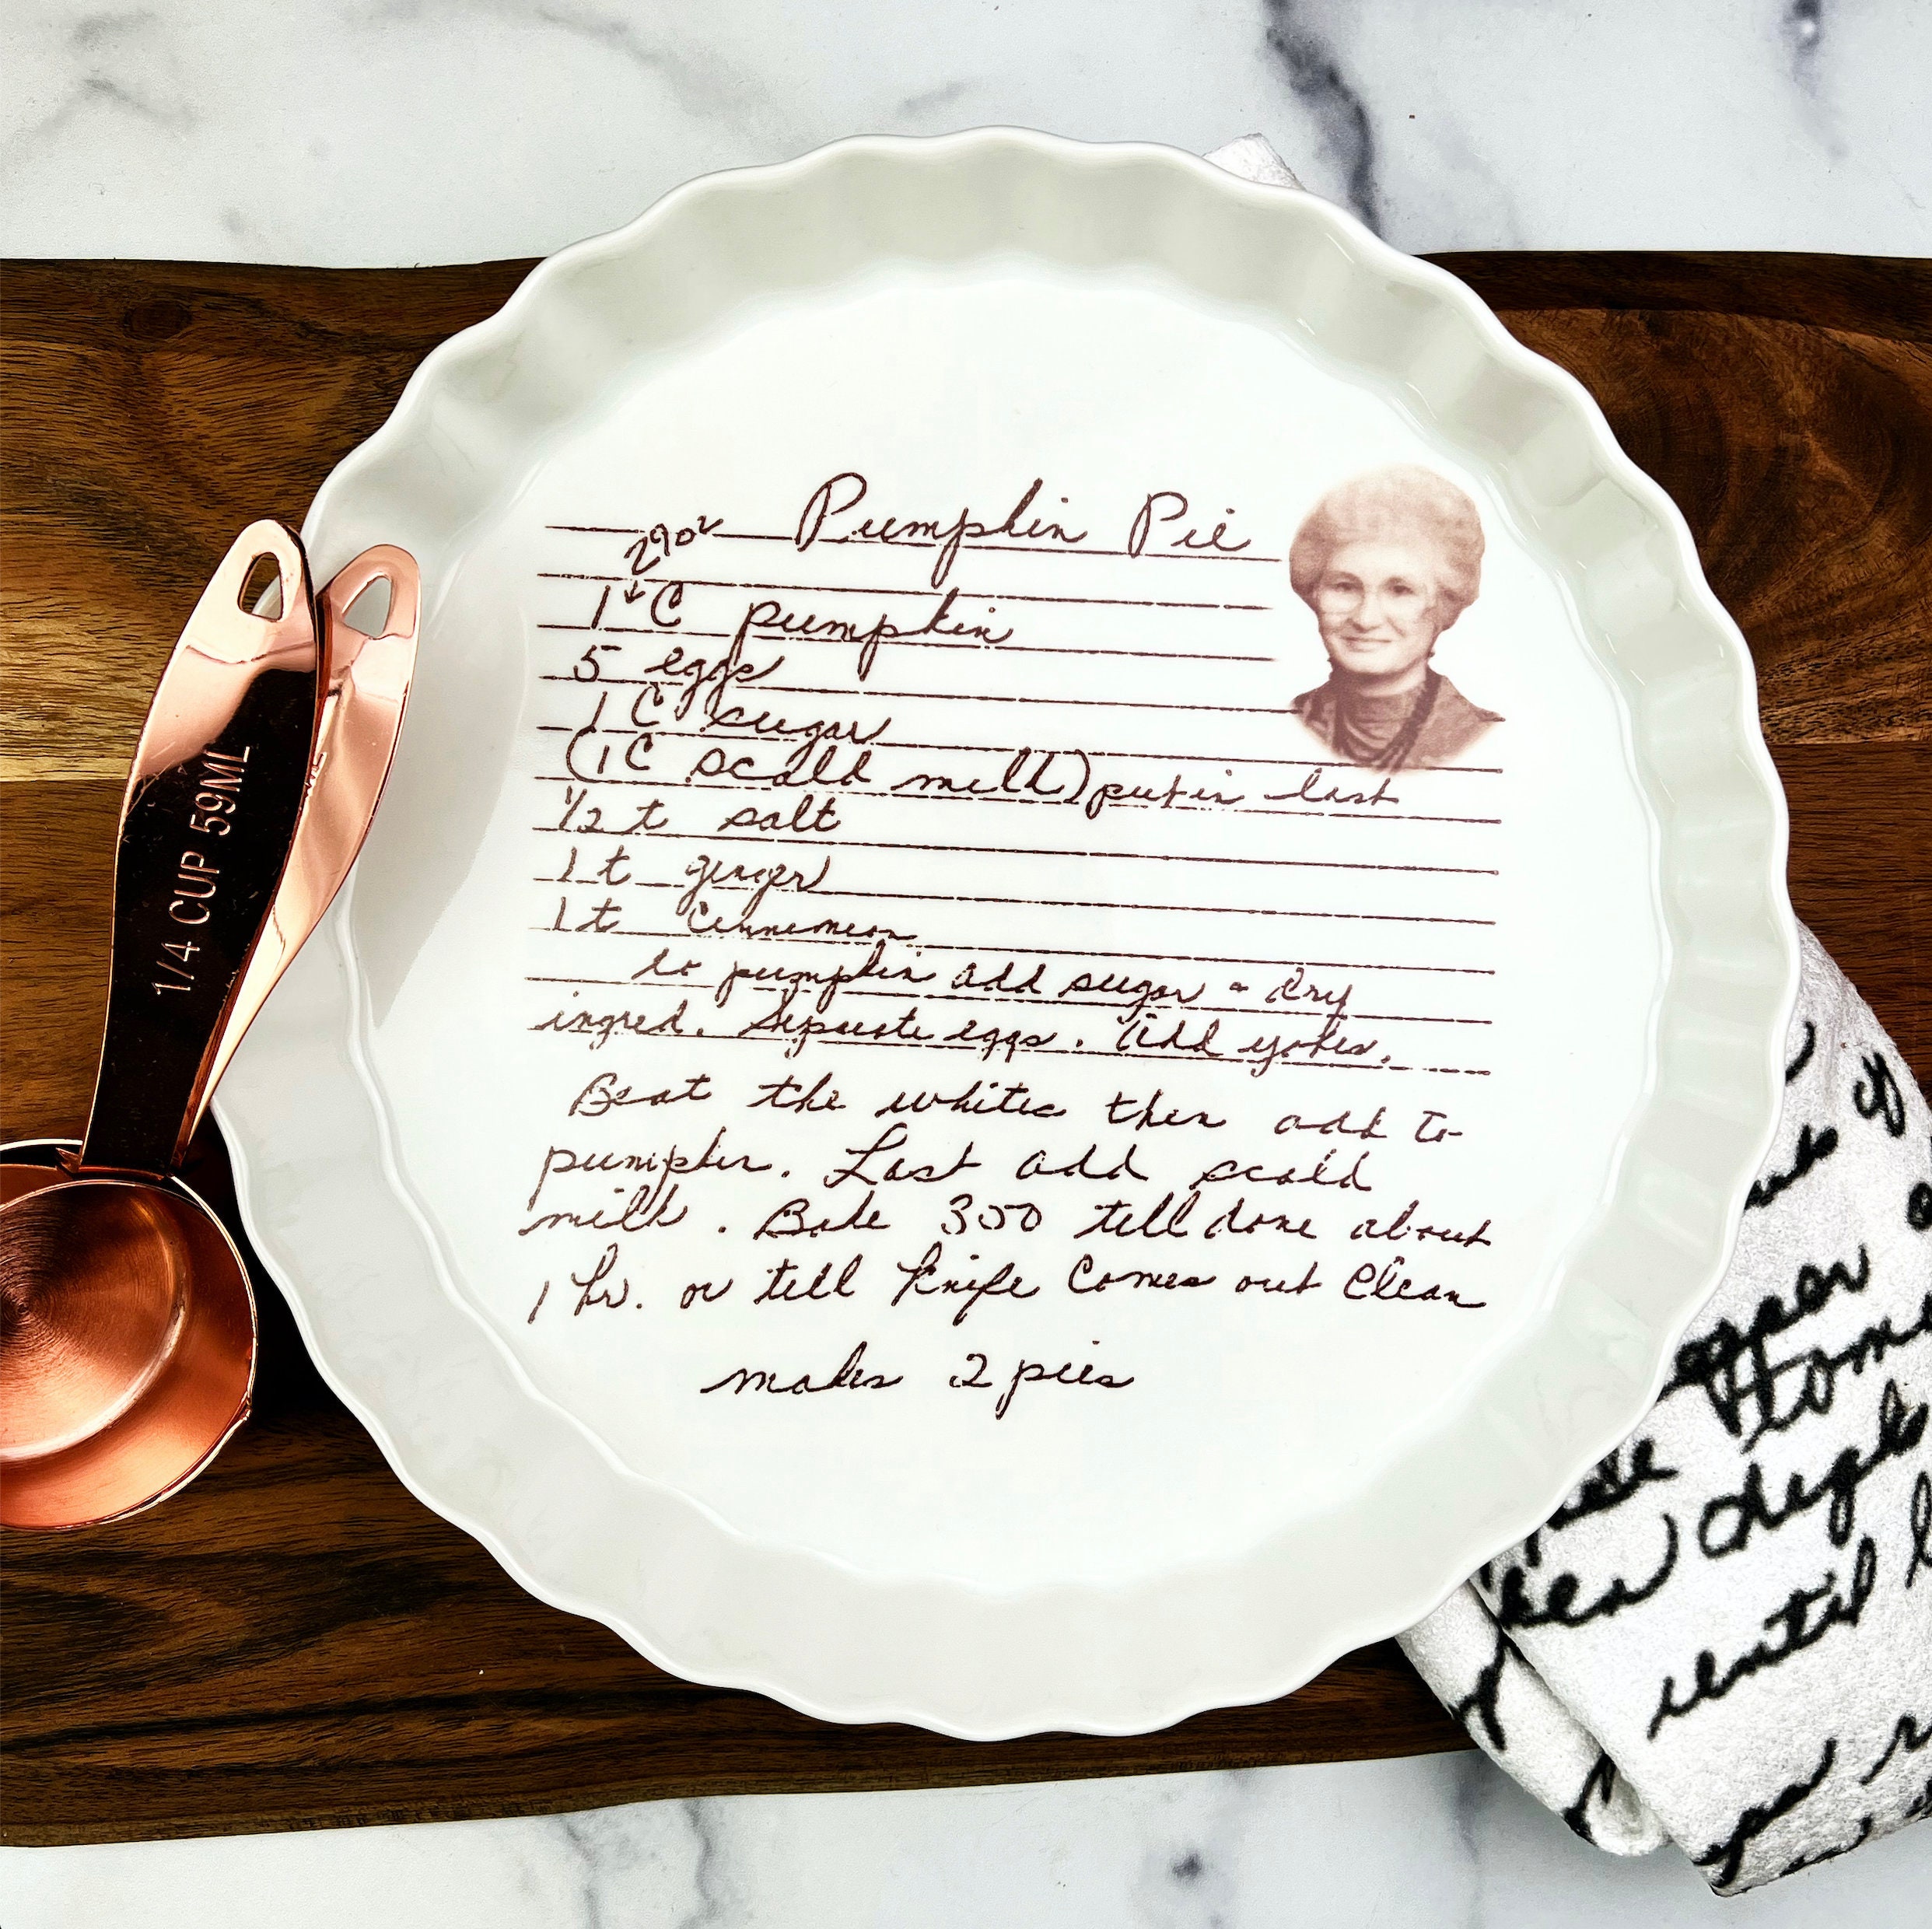 Pumpkin Pie
29oz
1 C pumpkin
5 eggs
1 C sugar
(1 C scald milk) put in last
1/2 t salt
1 t ginger
1 t Cinnemon
to pumpkin add sugar & dry
ingred. Seperate eggs. Add yokes.
Beat the whites then add to
pumpkin. Last add scald
milk. Bake 350 tell done about
1 hr. or tell knife Comes out Clean
makes 2 pies
1/4 CUP 59ML
until